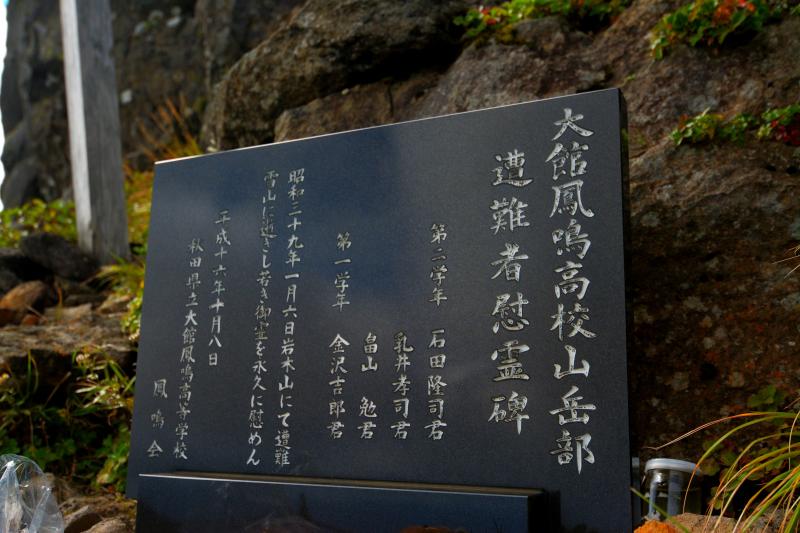 大館鳳鳴高校山岳部
遭難者慰霊碑
第二学年 石田隆司君
乳井孝司君
畠山 勉君
第一学年 金沢吉郎君
昭和三十九年一月六日岩木山にて遭難
雪山に逝きし若き御霊を永久に慰めん
平成十六年十月八日
秋田県立大館鳳鳴高等学校
鳳鳴会